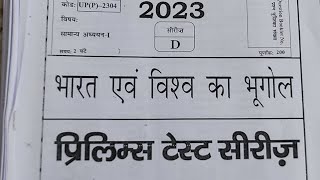 कोड: UP(P)-2304
2023
विषय:
सामान्य अध्ययन-I
सीरीज़
D
समय: 2 घंटे
पूर्णांक: 200
भारत एवं विश्व का भूगोल
प्रिलिम्स टेस्ट सीरीज़